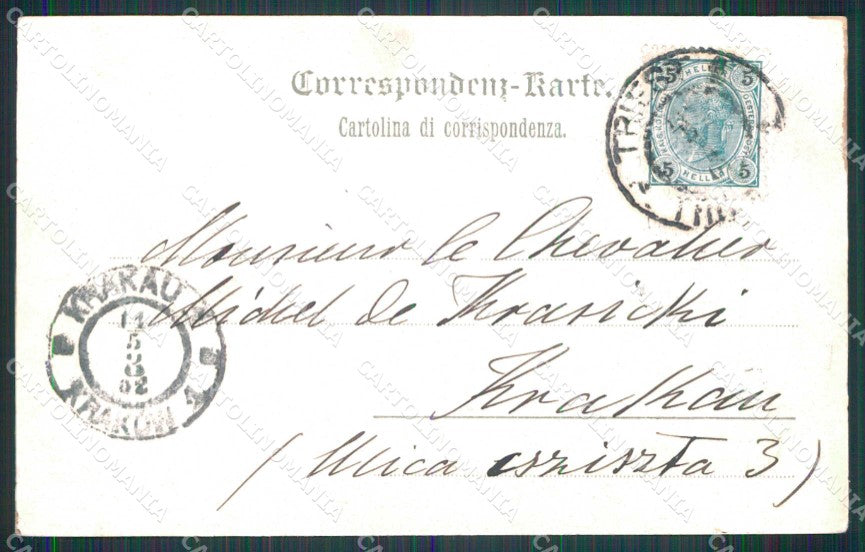 Correspondenz-Karte.
Cartolina di corrispondenza.
5 HELLER 5
5 HELLER 5
TRIEST
Monsieur le Chevalier
Michel de Krasicki
Krakau
(Ulica 3)
KRAKAU
14
5
02
KRAKÓW
CARTOLINOMANIA